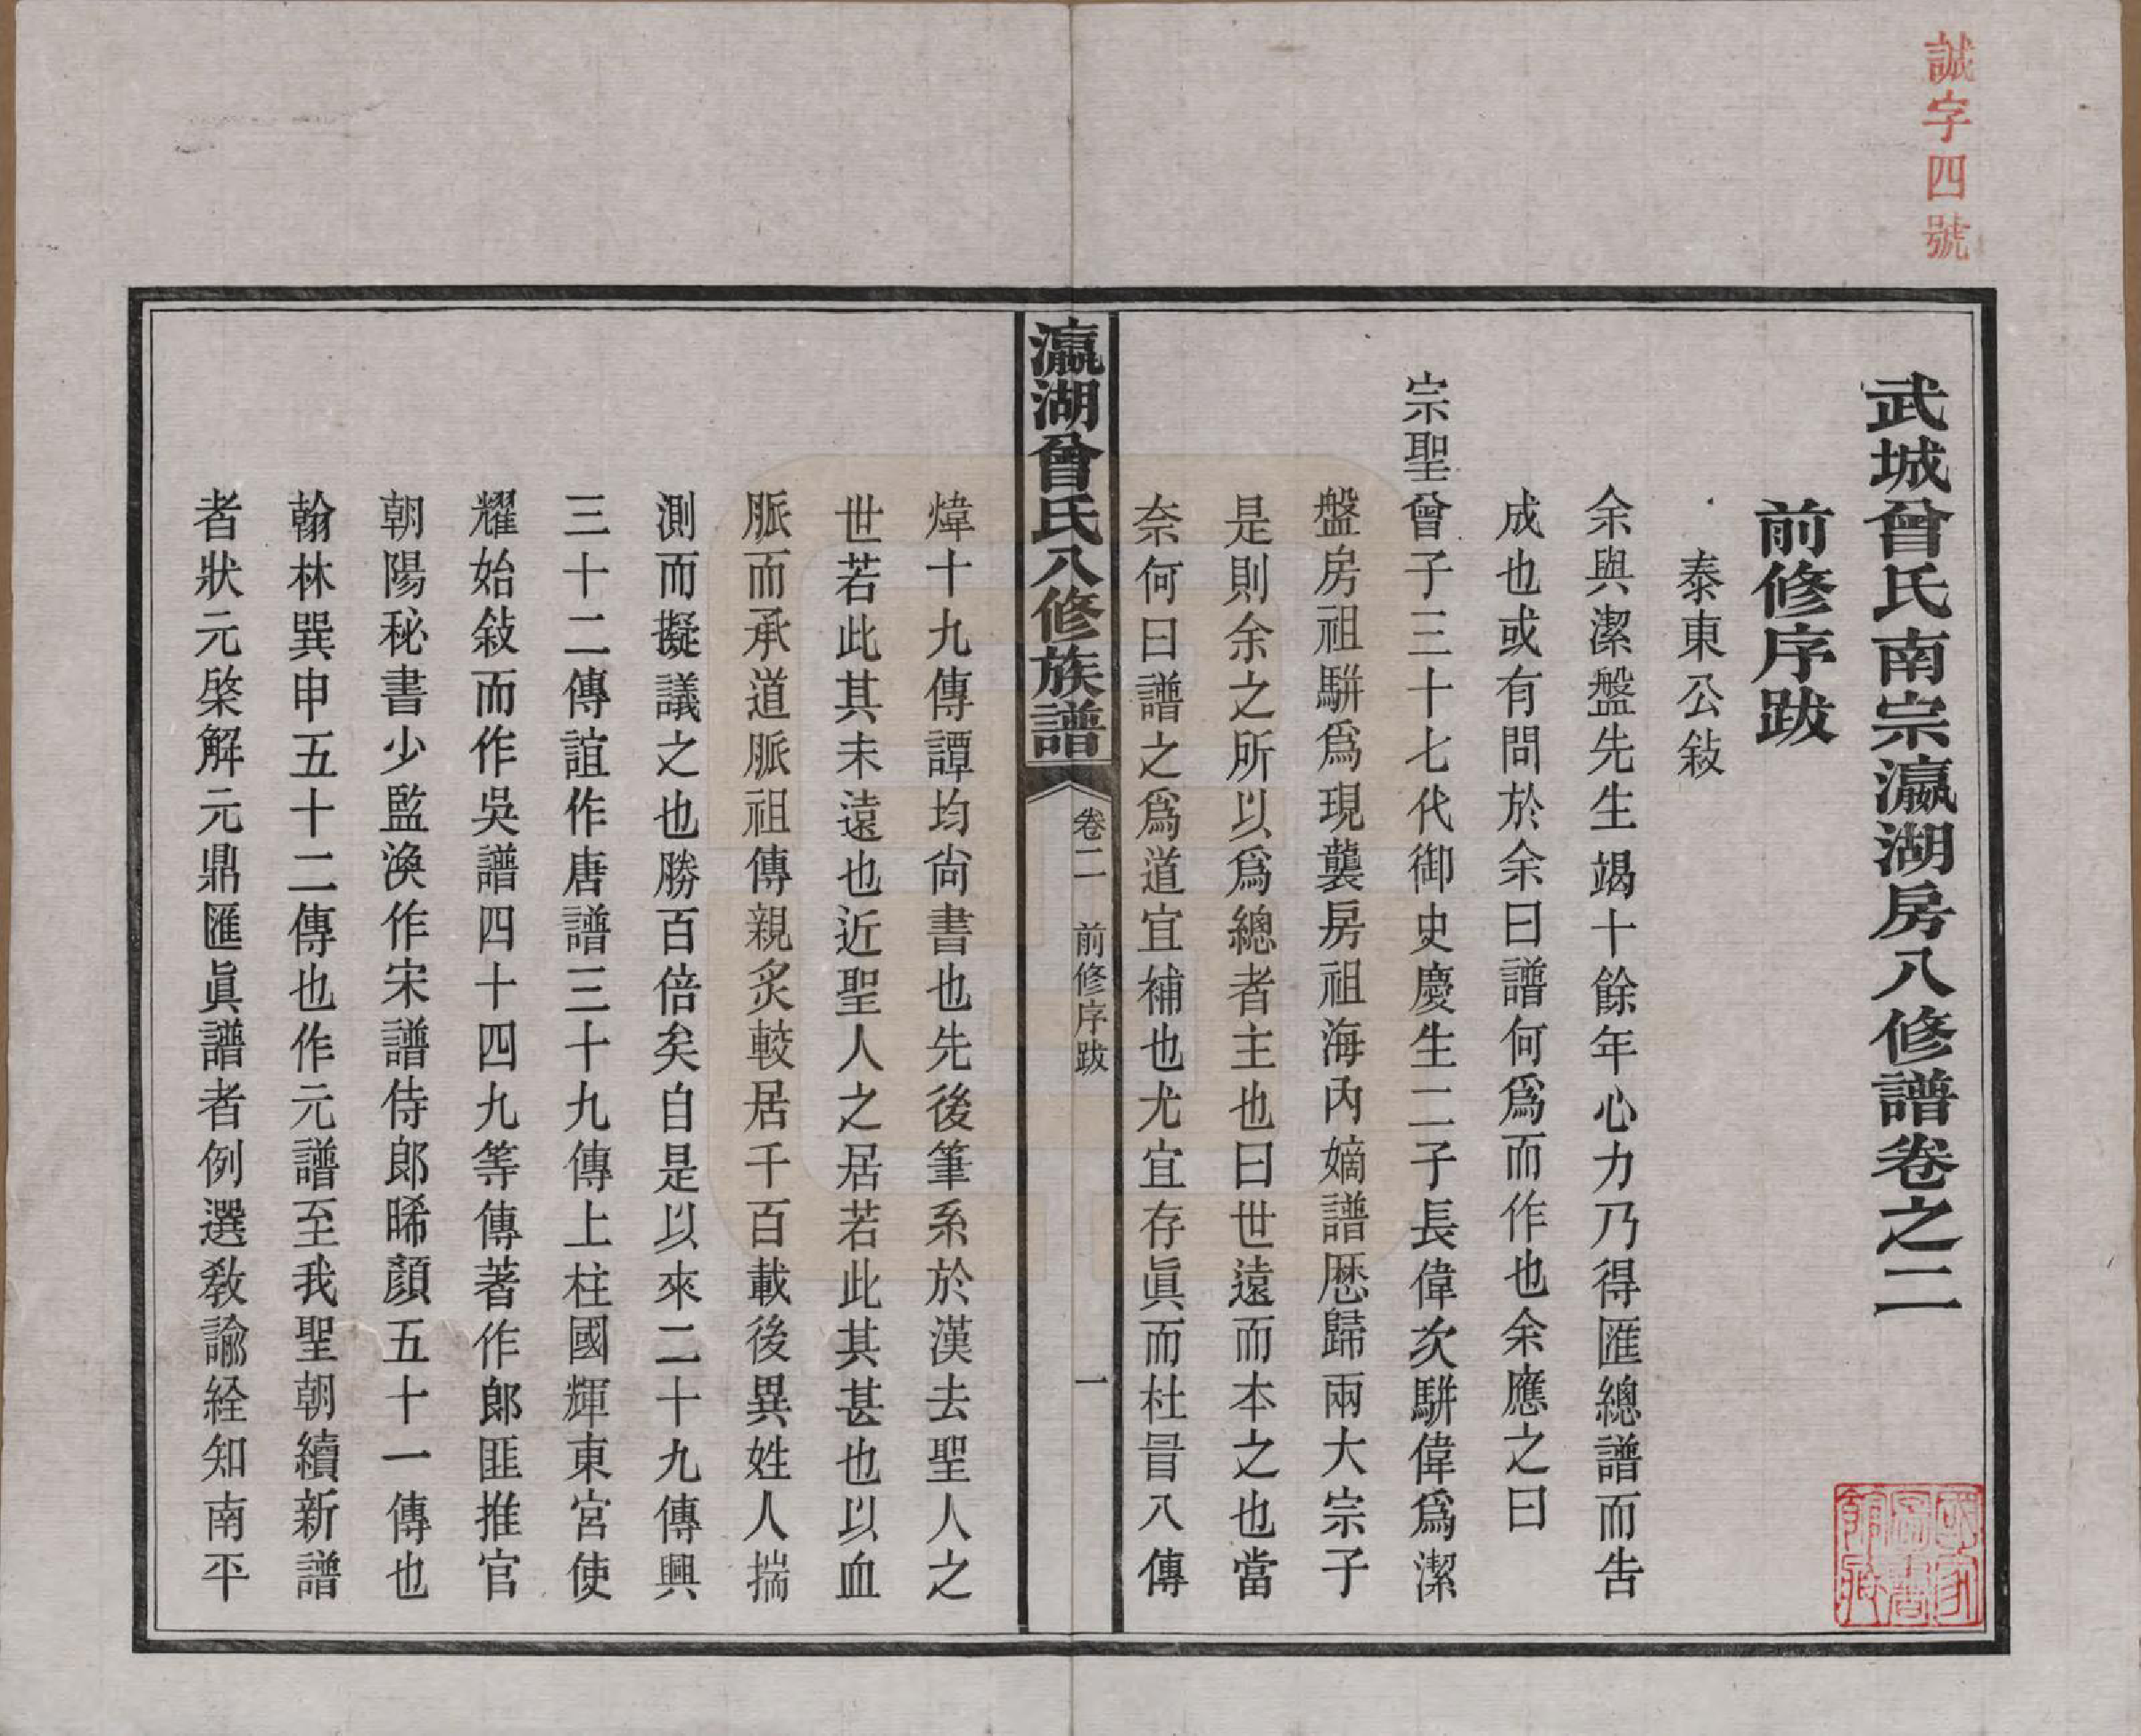 誠字四號
武城曾氏南宗瀛湖房八修譜卷之二
前修序跋
泰東公敍
余與潔盤先生竭十餘年心力乃得匯總譜而告
成也或有問於余曰譜何爲而作也余應之曰
宗聖曾子三十七代御史慶生二子長偉次駢偉爲潔
盤房祖駢爲現襲房祖海內嫡譜歷歸兩大宗子
是則余之所以爲總者主也曰世遠而本之也當
奈何曰譜之爲道宜補也尤宜存眞而杜冒八傳
瀛湖曾氏八修族譜
卷二
前修序跋
一
煒十九傳譚均尙書也先後筆系於漢去聖人之
世若此其未遠也近聖人之居若此其甚也以血
脈而承道脈祖傳親炙較居千百載後異姓人揣
測而擬議之也勝百倍矣自是以來二十九傳興
三十二傳誼作唐譜三十九傳上柱國輝東宮使
耀始敍而作吳譜四十四九等傳著作郎匪推官
朝陽秘書少監渙作宋譜侍郎晞顏五十一傳也
翰林巽申五十二傳也作元譜至我聖朝續新譜
者狀元棨解元鼎匯眞譜者例選敎諭经知南平
國家圖書館藏